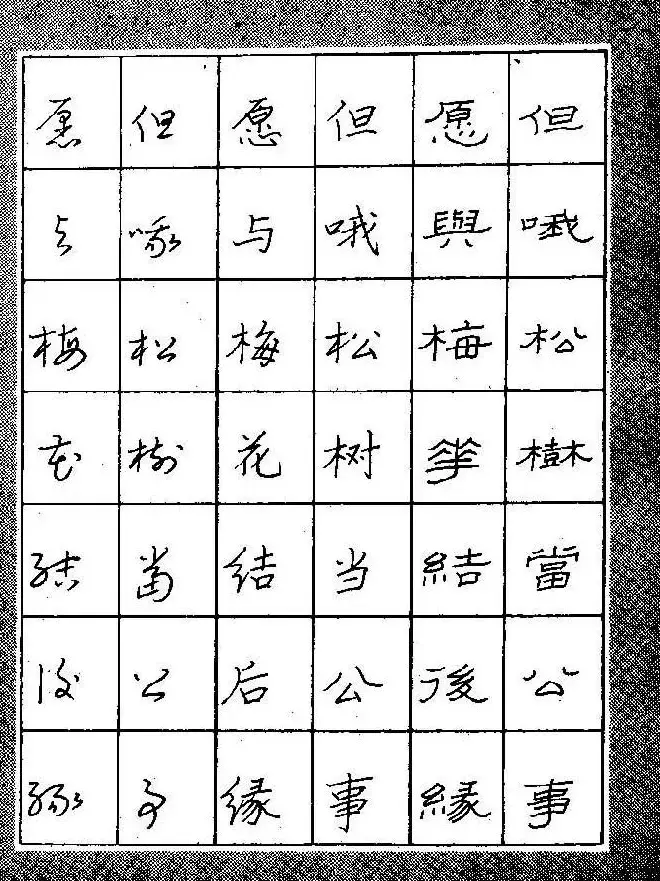 但哦松樹當公事
愿與梅華結後緣
但哦松树当公事
愿与梅花结后缘
但哦松樹當公事
愿与梅花結後緣